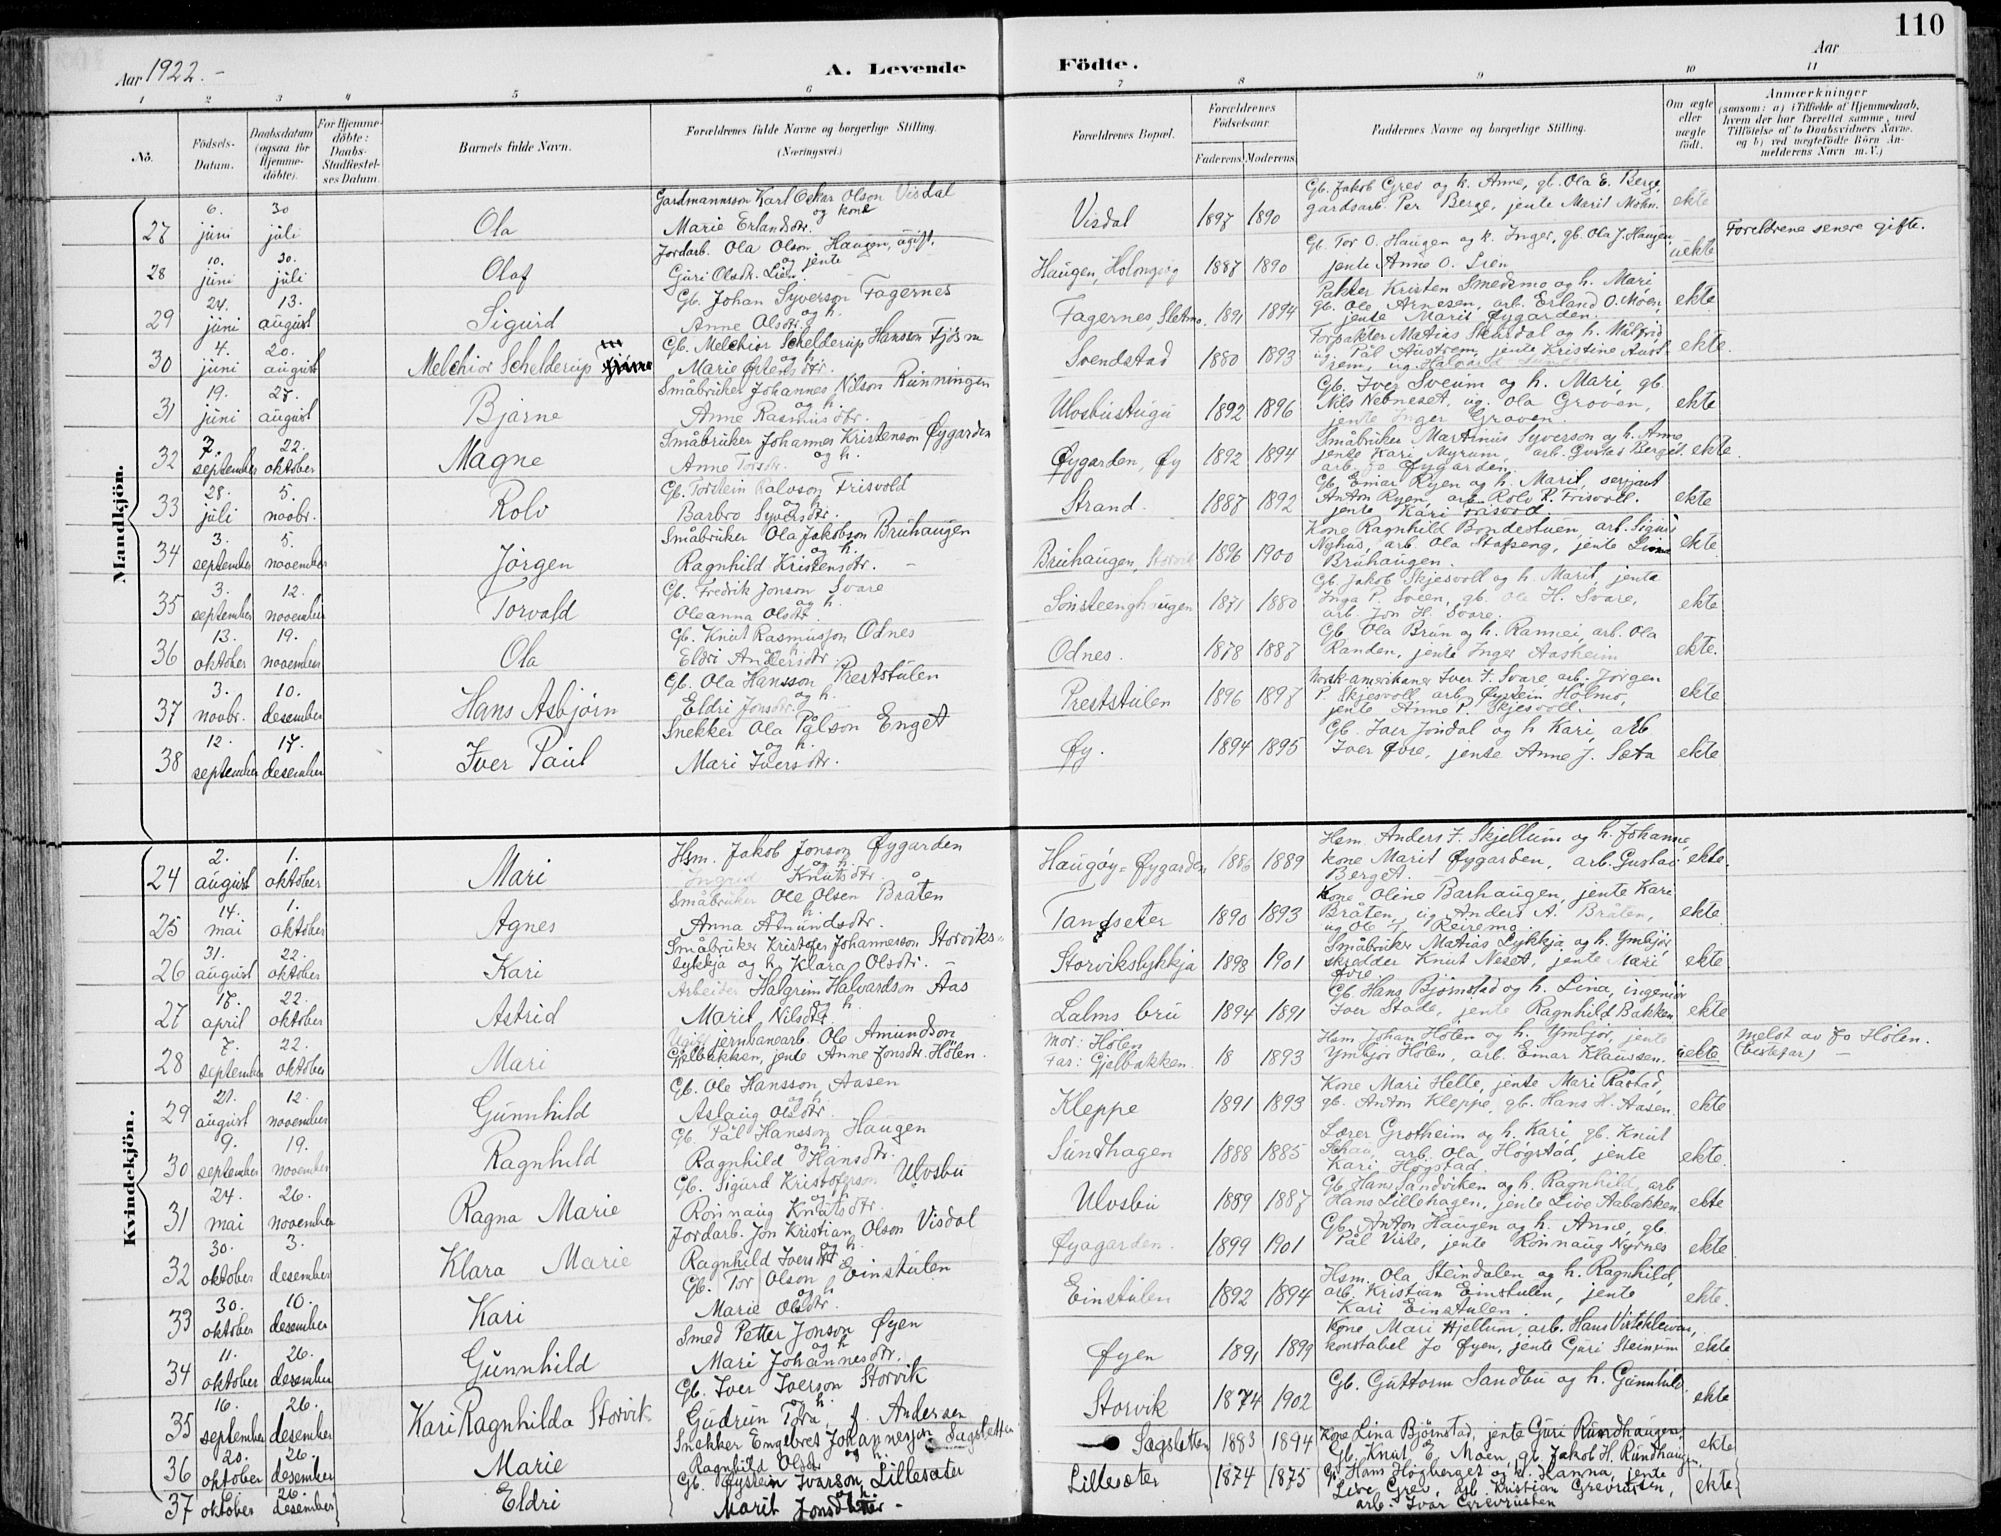 110
Aar 1922.-
A. Levende Födte.
Aar
1 2 3 4 5 6 7 8 9 10 11
No.
Födsels-Datum.
Daabsdatum (ogsaa for Hjemme-döbte).
For Hjemme-döbte: Daabs-Stadfæstel-ses Datum.
Barnets fulde Navn.
Forældrenes fulde Navne og borgerlige Stilling. (Næringsvei.)
Forældrenes Bopæl.
Forældrenes Födselsaar.
Faderens Moderens
Faddernes Navne og borgerlige Stilling.
Om ægte eller uægte födt.
Anmærkninger
(saasom: a) i Tilfælde af Hjemmedaab, hvem der har forrettet samme, med Tilföielse af to Daabsvidners Navne. og b) ved uægtefödte Börn An-melderens Navn m. V.)
Mandkjön.
27 6. juni 30 juli Ola Gardmannsson Karl Oskar Olson Visdal og kone Marie Erlandsdtr. Visdal 1897 1890 Gb. Jakob Grev og k. Anne, gb. Ola E. Berge, gardsarb. Per Berge, jente Marit Mohn. ekte
28 10. juni 30. juli Olaf Jordarb. Ola Olson Haugen, ugift. og jente Guri Olsdtr. Lien. Haugen, 1887 1890 Gb. Tor O. Haugen og k. Inger, gb. Ola J. Haugen, jente Anne O. uekte Foreldrene senere gifte.
29 24. juni 13. august Sigurd Gb. Johan Syverson Fagernes og h. Anne Olsdtr. Fagernes, Sletmo. 1891 1894 Pakter Kristen Smedsmo og h. Mari, gb. Ole Arnesen, arb. Erland O. Moen, jente Marit Øygarden. ekte
30 4. juni 20. august Melchior Schelderup Gb. Melchior Schelderup Hansson Fjøsm og h. Marie Svendstad 1880 1893 Forpakter Matias Skurdal og h. Målfrid, ug. Pål Austrem, jente Kristine Aust-rem, ug. Halvard ekte.
31 19. juni 27. august Bjarne Småbruker Johannes Nilson Runningen og h. Anne Rasmusdtr. Ulvsbustugu 1892 1896 Gb. Iver Sveum og h. Mari, gb. Nils Nebneset, ug. Ola Groven, jente Inger Groven. ekte
32 7. september 22. oktober Magne Småbruker Johannes Kristenson Øygarden og h. Anne Torsdtr. Øygarden, Øy 1892 1894 Småbruker Martinus Syverson og h. Anne, jente Kari Myrum, arb. Gustav Berget. arb. Jo Øygarden. ekte.
33 28. juli 5. novbr. Rolv Gb. Torstein Rolvson Frisvold og h. Barbro Syversdtr. Strand. 1887 1892 Gb. Emar Ryen og h. Marit, serjant Anton Ryen, arb. Rolv R. Frisvoll. jente Kari Frisvold. ekte
34 3. september 5. november Jørgen Småbruker Ola Jakobson Bruhaugen og h. Ragnhild Kristensdtr. Bruhaugen, Storvik 1896 1900 Kone Ragnhild Bondestuen, arb. Sigurd Nyhus, arb. Ola Stafseng, jente Lina Bruhaugen. ekte
35 3. september 12. november Torvald Gb. Fredrik Jonson Svare og h. Oleanna Olsdtr. Sønsteenghaugen 1871 1880 Gb. Jakob Skjesvoll og h. Marit, jente Inga P. Sveen, gb. Ole H. Svare, arb. Jon H. Svare. ekte
36 13. oktober 19. november Ola Gb. Knut Rasmusson Odnes og h. Eldri Andersdtr. Odnes. 1878 1887 Gb. Ola Brun og h. Rannei, arb. Ola Randen, jente Inger Aasheim ekte.
37 3. novbr. 10. desember Hans Asbjørn Gb. Ola Hansson Preststulen og h. Eldri Jonsdtr. Preststulen 1896 1897 Norsk-amerikaner Iver F. Svare arb. Jørgen P. Skjesvoll, arb. Øystein Holmo, jente Anne P. Skjesvoll. ekte
38 12. september 17. desember Iver Paul Snekker Ola Pålson Enget og h. Mari Iversdtr. Øy. 1894 1895 Gb. Iver Jondal og h Kari, arb Iver Øvre, jente Anne J. Sæta ekte
Kvindekjön.
24 2. august 1. oktober Mari Hsm. Jakob Jonson Øygarden og h. Ingrid Knutsdtr. Haugøy-Øygarden 1886 1889 Hsm. Anders F. Skjellum og h. Johanne, kone Marit Øygarden, arb. Gustav Berget. ekte.
25 14. mai 1. oktober Agnes Småbruker Ole Olsen Bråten h. Anna Amundsdtr. Tandseter 1890 1893 Kone Oline Barhaugen, jente Kari Bråten, ug Anders A. Bråten, ug Ole Reiremo. ekte
26 31. august 22. oktober Kari Småbruker Kristofer Johanneson Storviks-lykkja og h. Klara Olsdtr. Storvikslykkja 1898 1901 Småbruker Matias Lykkja og h. Ymbjør, skredder Knut Neset, jente Mari Øvre. ekte
27 17. april 22. oktober Astrid Arbeider Halgrim Halvardson Aas og h Marit Nilsdtr. Lalms bru 1894 1891 Gb. Hans Bjørnstad og h. Lina, ingeniør Iver Stade, jente Ragnhild Bakken ekte
28 7. september 22. oktober Mari Ugift jernbanearb. Ole Amundson Gjelbakken, jente Anne Jonsdtr. Hølen. Mor: Hølen Far: Gjelbakken. 18 1893 Hsm Johan Hølen og h. Ymbjør, jente Ymbjør Hølen, arb. Emar Klausen. uekte Meldt av Jo Hølen. (bestefar) –
29 21. august 12. november Gunnhild Gb. Ole Hansson Aasen og h Aslaug Olsdtr. Kleppe 1891 1893 Kone Mari Helle, jente Mari Råstad, gb. Anton Kleppe, gb. Hans H. Aasen. ekte
30 9. september 19. november Ragnhild Gb. Pål Hansson Haugen og h. Ragnhild Hansdtr. Sundhagen 1888 1885 Lærer Grotheim og h. Kari, gb. Knut arb. Ola Høgstad, jente Kari Høgstad. ekte.
31 24. mai 26. november Ragna Marie Gb. Sigurd Kristoferson Ulvsbu og h. Rønnaug Knutsdtr. Ulvsbu 1889 1887 Gb Hans Sandviken og h. Ragnhild, arb Hans Lillehagen, jente Live Aabakken ekte
32 30. oktober 3. desember Klara Marie Jordarb. Jon Kristian Olson Visdal og h. Ragnhild Iversdtr Øyagarden. 1899 1901 Gb. Anton Haugen og h. Anne, gb. Pål Viste, jente Rønnaug Nyrnes ekte
33 30. oktober 10. desember Kari Gb. Tor Olson Einstulen og h Marie Olsdtr. Einstulen 1892 1894 Hsm. Ola Steindalen og h. Ragnhild, arb. Kristian Einstulen, jente Kari Einstulen. ekte.
34 11. oktober 26. desember Gunnhild Smed Petter Jonson Øyen og h Mari Johannesdtr. Øyen 1891 1899 Kone Mari Hjellum, arb. Hans Visteklevan, konstabel Jo Øyen, jente Guri Steinum ekte.
35 16. september 26. desember Kari Ragnhilda Storvik Gb. Iver Iverson Storvik og h. Gudrun Tora, f. Andersen Storvik 1874 1902 Gb. Guttorm Sandbu og h. Gunnhild. ekte
36 20. oktober 26. desember Marie Snekker Engebret Johannesson Sagsletten og h Ragnhild Olsdtr Sagsletten 1883 1894 Kone Lina Bjørnstad, jente Guri Rundhaugen, Gb. Knut E Moen, gb. Jakob H. Rundhaugen. ekte
37 oktober 26. desember Eldri Gb. Øystein Ivarson Lillesæter og h. Marit Jonsdatter - Lillesæter 1874 1875 Gb Hans Høgberget og h. Hanna, jente Live Grev, arb. Kristian Grevrusten, arb. Ivar Grevrusten ekte.